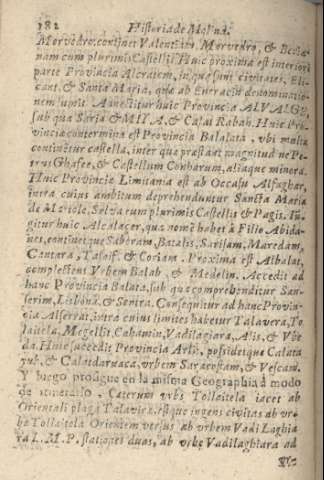 182 Historia de Molina.
Morvedro. continet Valentiam, Morvedro, & Beria-
nam cum plurimis Castellis. Huic proxima est interiori
parte Provincia Alcratem, in qua sunt civitates, Eli-
cant, & Santa Maria, quæ ab Eneracin denominatio-
nem sumit. Annectitur huic Provincia
sub qua Soria & & Calai Rabah. Huic Pro-
vincia contermina est Provincia Balalata, vbi multa
continetur castella, inter quæ præstant magnitudine Pe-
trus Ghafee, & Castellum Conharum, aliaque minora.
Huic Provincia Limitania est ab Occasu Alfaghar,
intra cuius ambitum deprehenduntur Sancta Maria
de Mariole, Selva cum plurimis Castellis & Pagis. Iu-
gitur huic Alcalacer, qua nomẽ habet à Filio Abida-
nes, continetque Saboram, Batalis, Sarisam, Maredam,
Cantara, Tasoif. & Coriam. Proxima est Albalat,
complectens Vrbem Balab, & Medelin. Accedit ad
hanc Provincia Balata, sub qua comprehenditur San-
serim, Lisbona. & Sentra. Consequitur ad hanc Provin-
cia Alserrat, intra cuius limites habetur Talavera, To-
laitola, Mogellit. Cahamin, Vadilagiara, Alis, & Vbe-
da. Huic succedit Provincia Arlit, possidetque Calata
yub, & Calatdaruaca, vrbem Saragostam, & Vescam.
Y luego prosigue en la misma Geographia à modo
de itinerario, Caterum vrbs Tollaitola iacet ab
Orientali plaga Talaviræ. estque ingens civitas ab vr-
be Tollaitola Orientem versus ab vrbem Vadi Laghia
ra L. M. P. stationes duas, ab vrbe Vadilaghiara ad